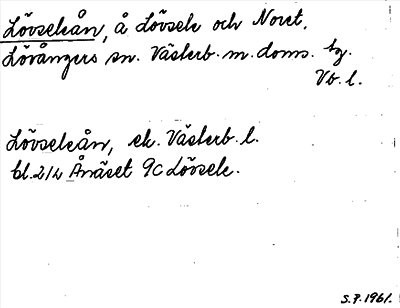 Lövseleån, å Lövsele och Noret.
Lövångers sn. Västerb. m. doms. tg.
Vb. l.
Lövseleån, ek. Västerb. l.
bl. 212 Ånäset 9C Lövsele.
S.7.1961.